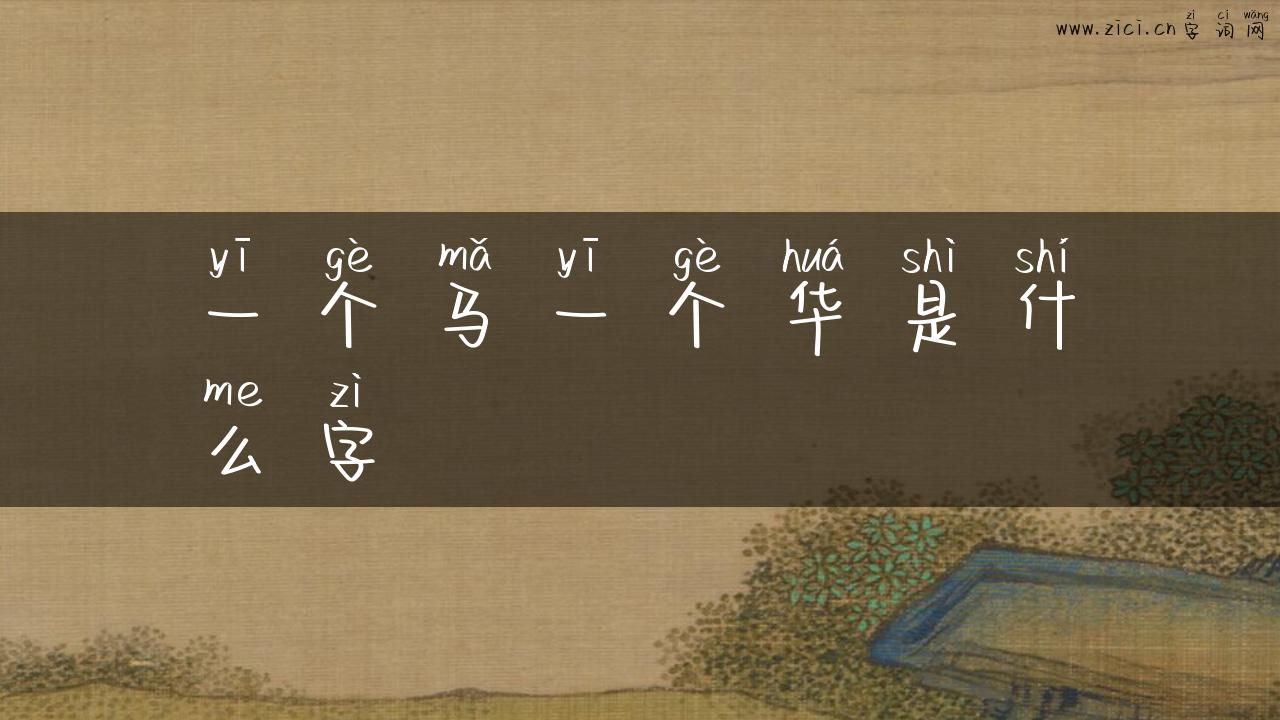 zì cí wǎng
www.zici.cn 字词网
yī gè mǎ yī gè huá shì shí
一个马一个华是什
me zì
么字